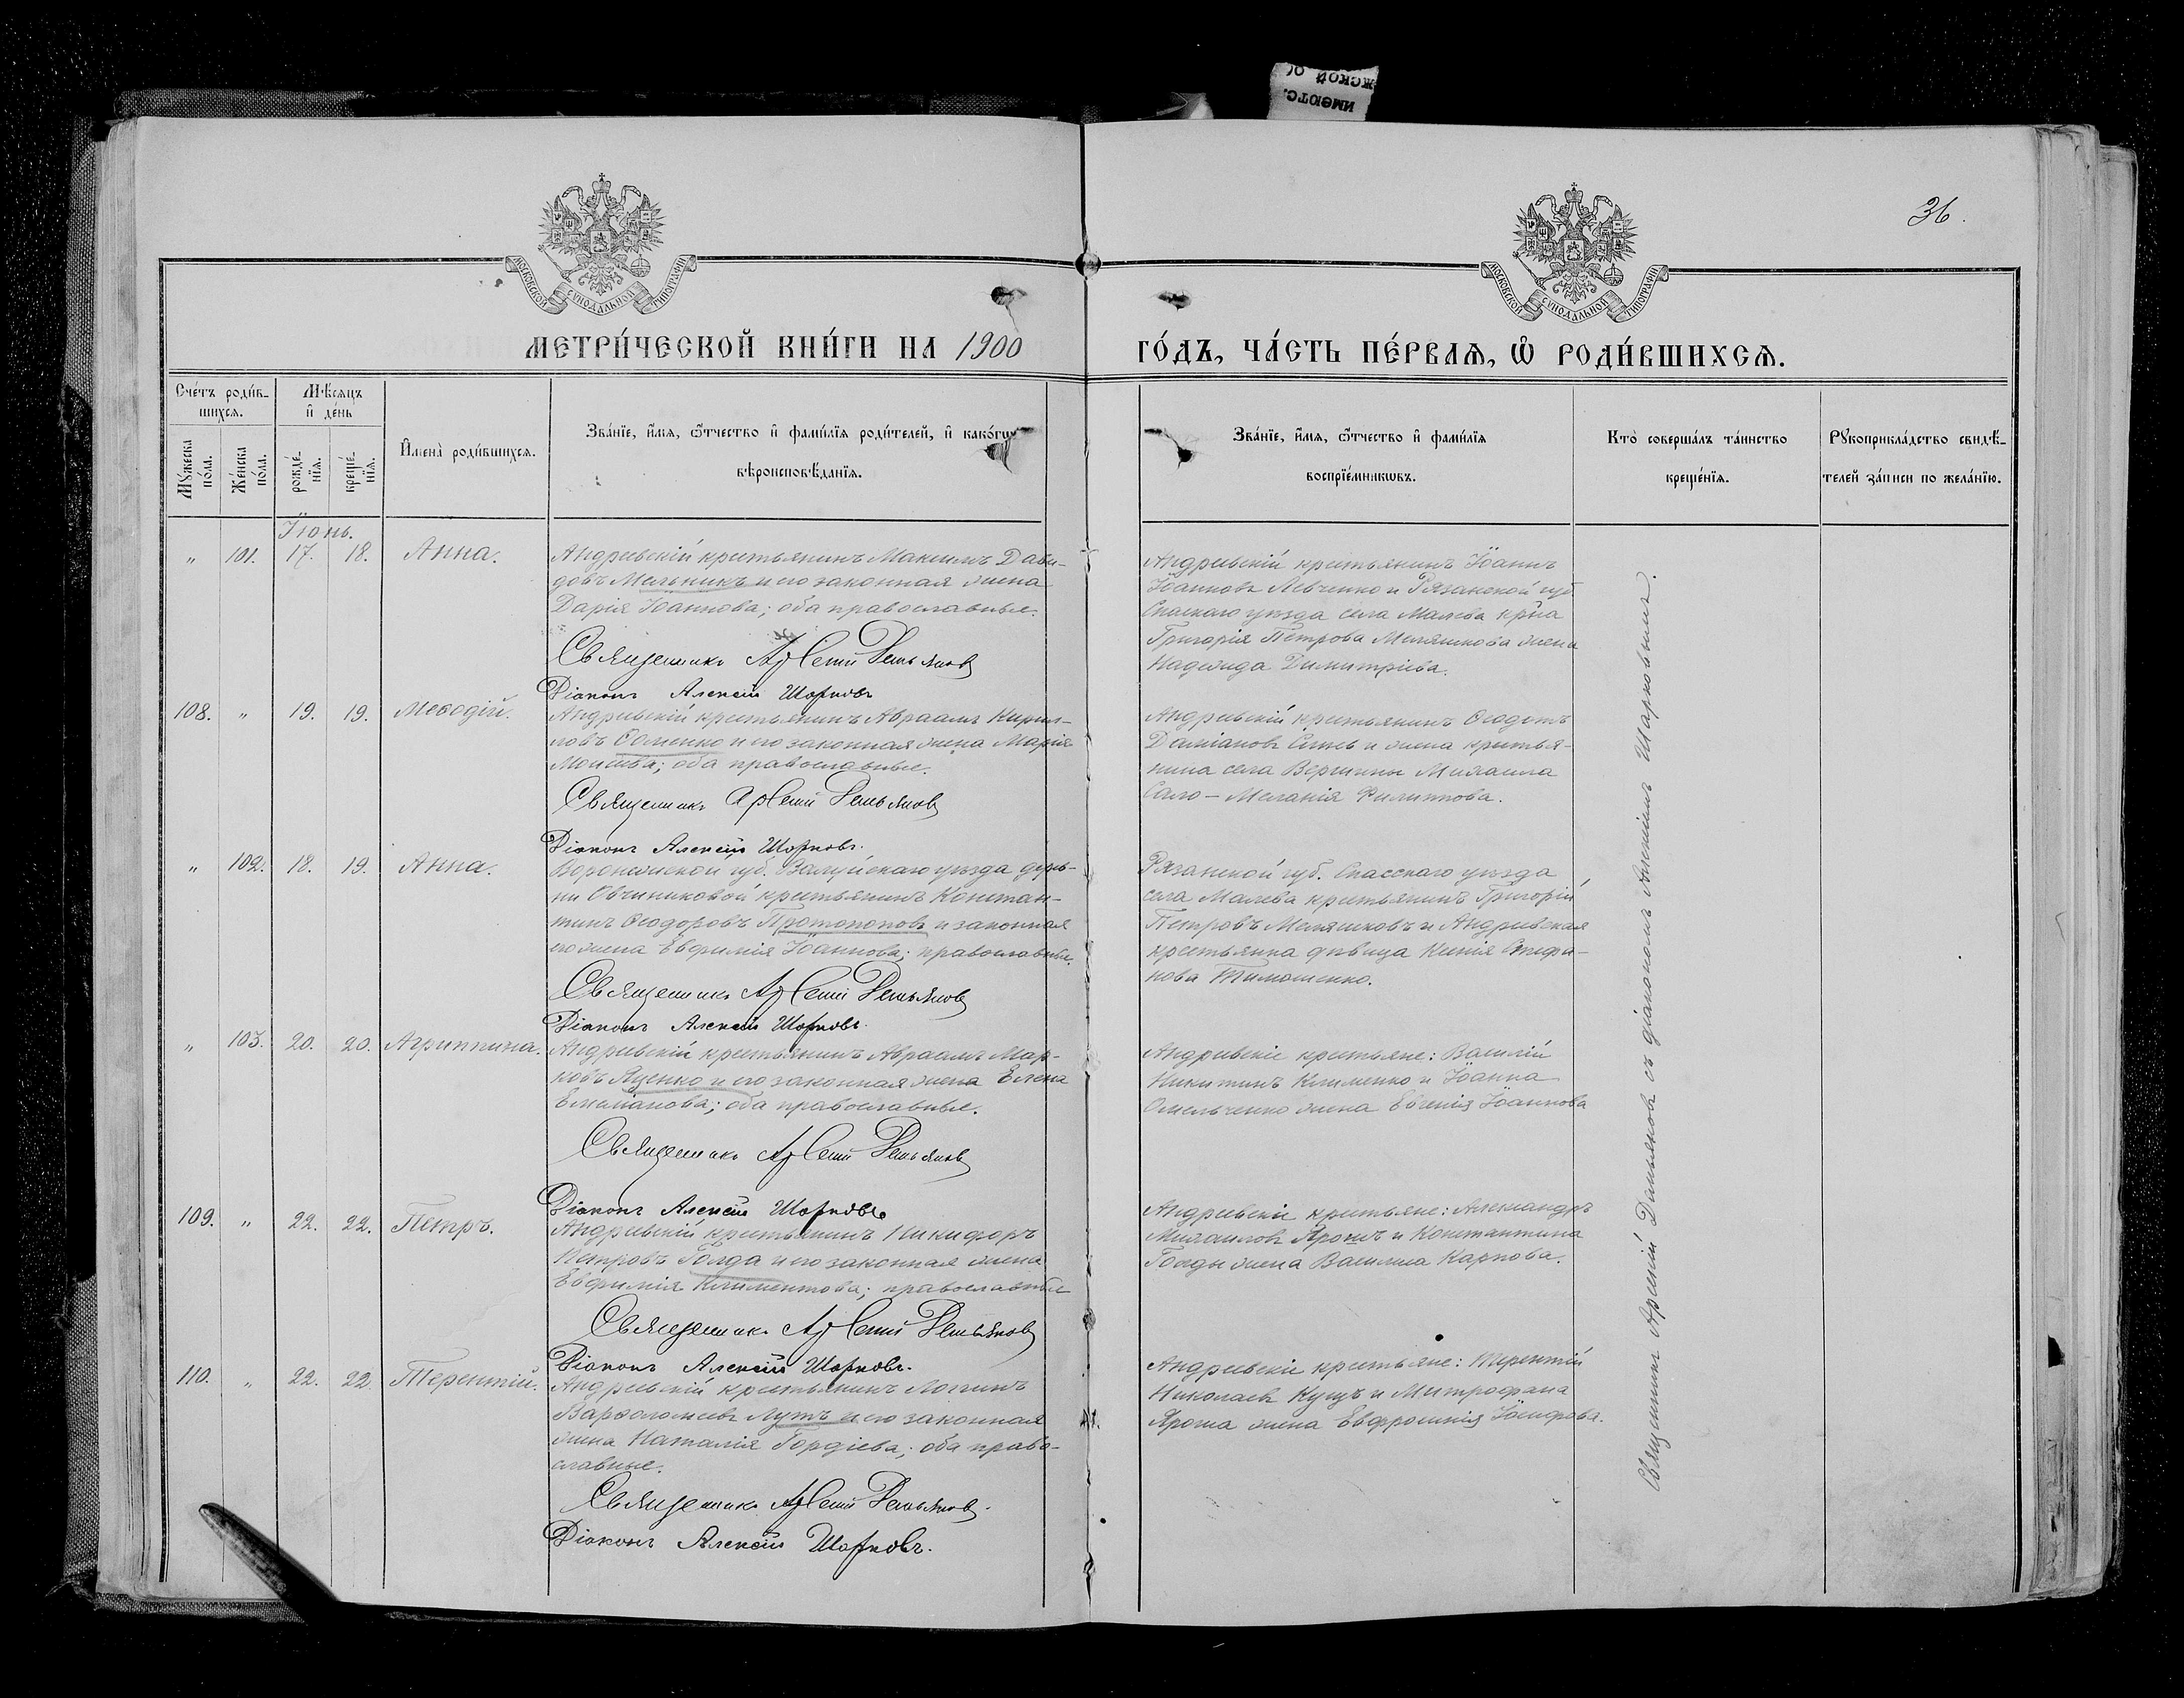 36.
МОСКОВСКОЙ СѴНОДАЛЬНОЙ ТИПОГРАФІИ
МОСКОВСКОЙ СѴНОДАЛЬНОЙ ТИПОГРАФІИ
МЕТРИ́ЧЕСКОЙ КНИ́ГИ НА 1900
ГО́ДЪ, ЧА́СТЬ ПЕ́РВАѦ, Ѿ РОДИ́ВШИХСѦ.
Сче́тъ роди́в-
шихсѧ.
Мꙋ́жеска по́ла.
Же́нска по́ла.
Мѣ́сѧцъ
и҆ де́нь
рожде́-
нїѧ.
креще́-
нїѧ.
И҆мена̀ роди́вшихсѧ.
Зва́нїе, и҆́мѧ, ѻ҆́тчество и҆ фами́лїѧ роди́телей, и҆ како́гѡ
вѣроисповѣ́данїѧ.
Зва́нїе, и҆́мѧ, ѻ҆́тчество и҆ фами́лїѧ
воспрїе́мникѡвъ.
Кто̀ соверша́лъ та́инство
креще́нїѧ.
Рꙋкоприкла́дство свидѣ́-
телей за́писи по жела́нїю.
Іюнь.
" 101. 17. 18. Анна.
Андреевскій крестьянинъ Максимъ Дави-
довъ Мельникъ и его законная жена
Дарія Іоаннова; оба православные.
Священникъ Арсеній Демьянов
Діаконъ Алексій Шарковъ
Андреевскій крестьянинъ Іоаннъ
Іоанновъ Левченко и Рязанской губ.
Спасскаго уѣзда села Малева кр-на
Григорія Петрова Меляшкова жена
Надежда Димитріева.
108. " 19. 19. Меѳодій.
Андреевскій крестьянинъ Авраамъ Кирил-
ловъ и его законная жена Марія
Моисеева; оба православные.
Священникъ Арсеній Демьянов
Діаконъ Алексій Шарковъ.
Андреевскій крестьянинъ Ѳеодотъ
Даміановъ и жена крестья-
нина села Вергины Михаила
Сало – Меланія Филиппова.
" 102. 18. 19. Анна.
Воронежской губ. Валуйскаго уѣзда дерев-
ни Овчиниковой крестьянинъ Констан-
тинъ Ѳеодоровъ Протопоповъ и законная
его жена Евфимія Іоаннова; православные.
Священникъ Арсеній Демьянов
Діаконъ Алексій Шарковъ.
Рязанской губ. Спасскаго уѣзда
села Малева крестьянинъ Григорій
Петровъ Меляшковъ и Андреевская
крестьянка дѣвица Ксенія Стефа-
нова Тимошенко.
" 103. 20. 20. Агриппина.
Андреевскій крестьянинъ Авраамъ Мар-
ковъ Яценко и его законная жена Елена
Емеліанова; оба православные.
Священникъ Арсеній Демьянов
Діаконъ Алексій Шарковъ
Андреевскіе крестьяне: Василій
Никитинъ Клименко и Іоанна
Омельченко жена Евгенія Іоаннова
109. " 22. 22. Петръ.
Андреевскій крестьянинъ Никифоръ
Петровъ и его законная жена
Евфимія Климентова; православные
Священникъ Арсеній Демьянов
Діаконъ Алексій Шарковъ.
Андреевскіе крестьяне: Александръ
Михаиловъ и Константина
жена Василиса Карпова.
110. " 22. 22. Терентій.
Андреевскій крестьянинъ Логгинъ
Варѳоломеевъ Лутъ и его законная
жена Наталія Гордіева; оба право-
славные.
Священникъ Арсеній Демьянов.
Діаконъ Алексій Шарковъ.
Андреевскіе крестьяне: Терентій
Николаевъ Куцъ и Митрофана
Яроша жена Евфросинія Іосифова.
Священникъ Арсеній Дамьяновъ съ діакономъ Алексіемъ Шарковымъ.